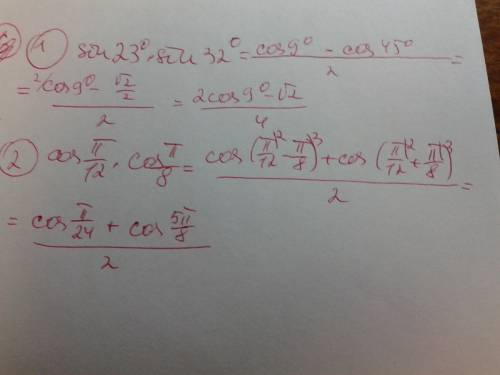 ① sin 23° · sin 32° = (cos 9° − cos 45°)/2 =
= (²⁄cos 9° − √2/2)/2 = (2cos 9° − √2)/4
② cos π/12 · cos π/8 = (cos (π/12 |² − π/8 |³) + cos (π/12 |² + π/8 |³))/2 =
= (cos π/24 + cos 5π/8)/2